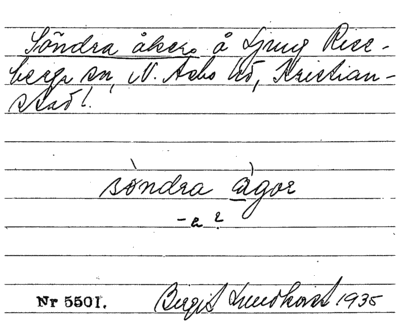 Söndra åker å Ljung Rise-
berga sn, N. Åsbo hd, Kristian-
stad l.
sòndra àgor
- a ?
Nr 5501. Birgit Lundkvist 1935